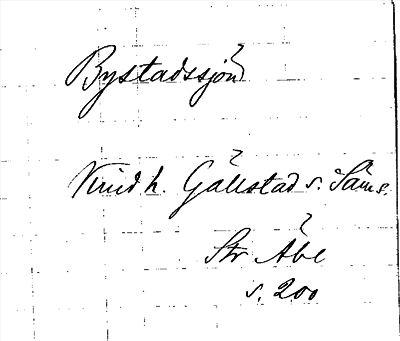 Bystadssjön
Kind h. Gällstad s. Säms.
Str Åbe
s. 200